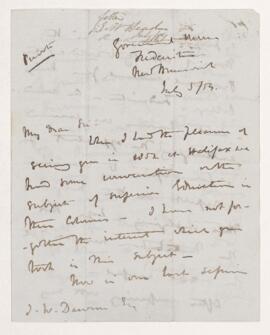 Private
Government House
Fredericton
New Brunswick
July 5/54.
My dear Sir
When I had the pleasure of
seeing you in 1852 at Halifax we
had some conversation on the
subject of Superior Education in
these Colonies - I have not for-
gotten the interest which you
took in this subject -
Now in our last session
J. W. Dawson Esq